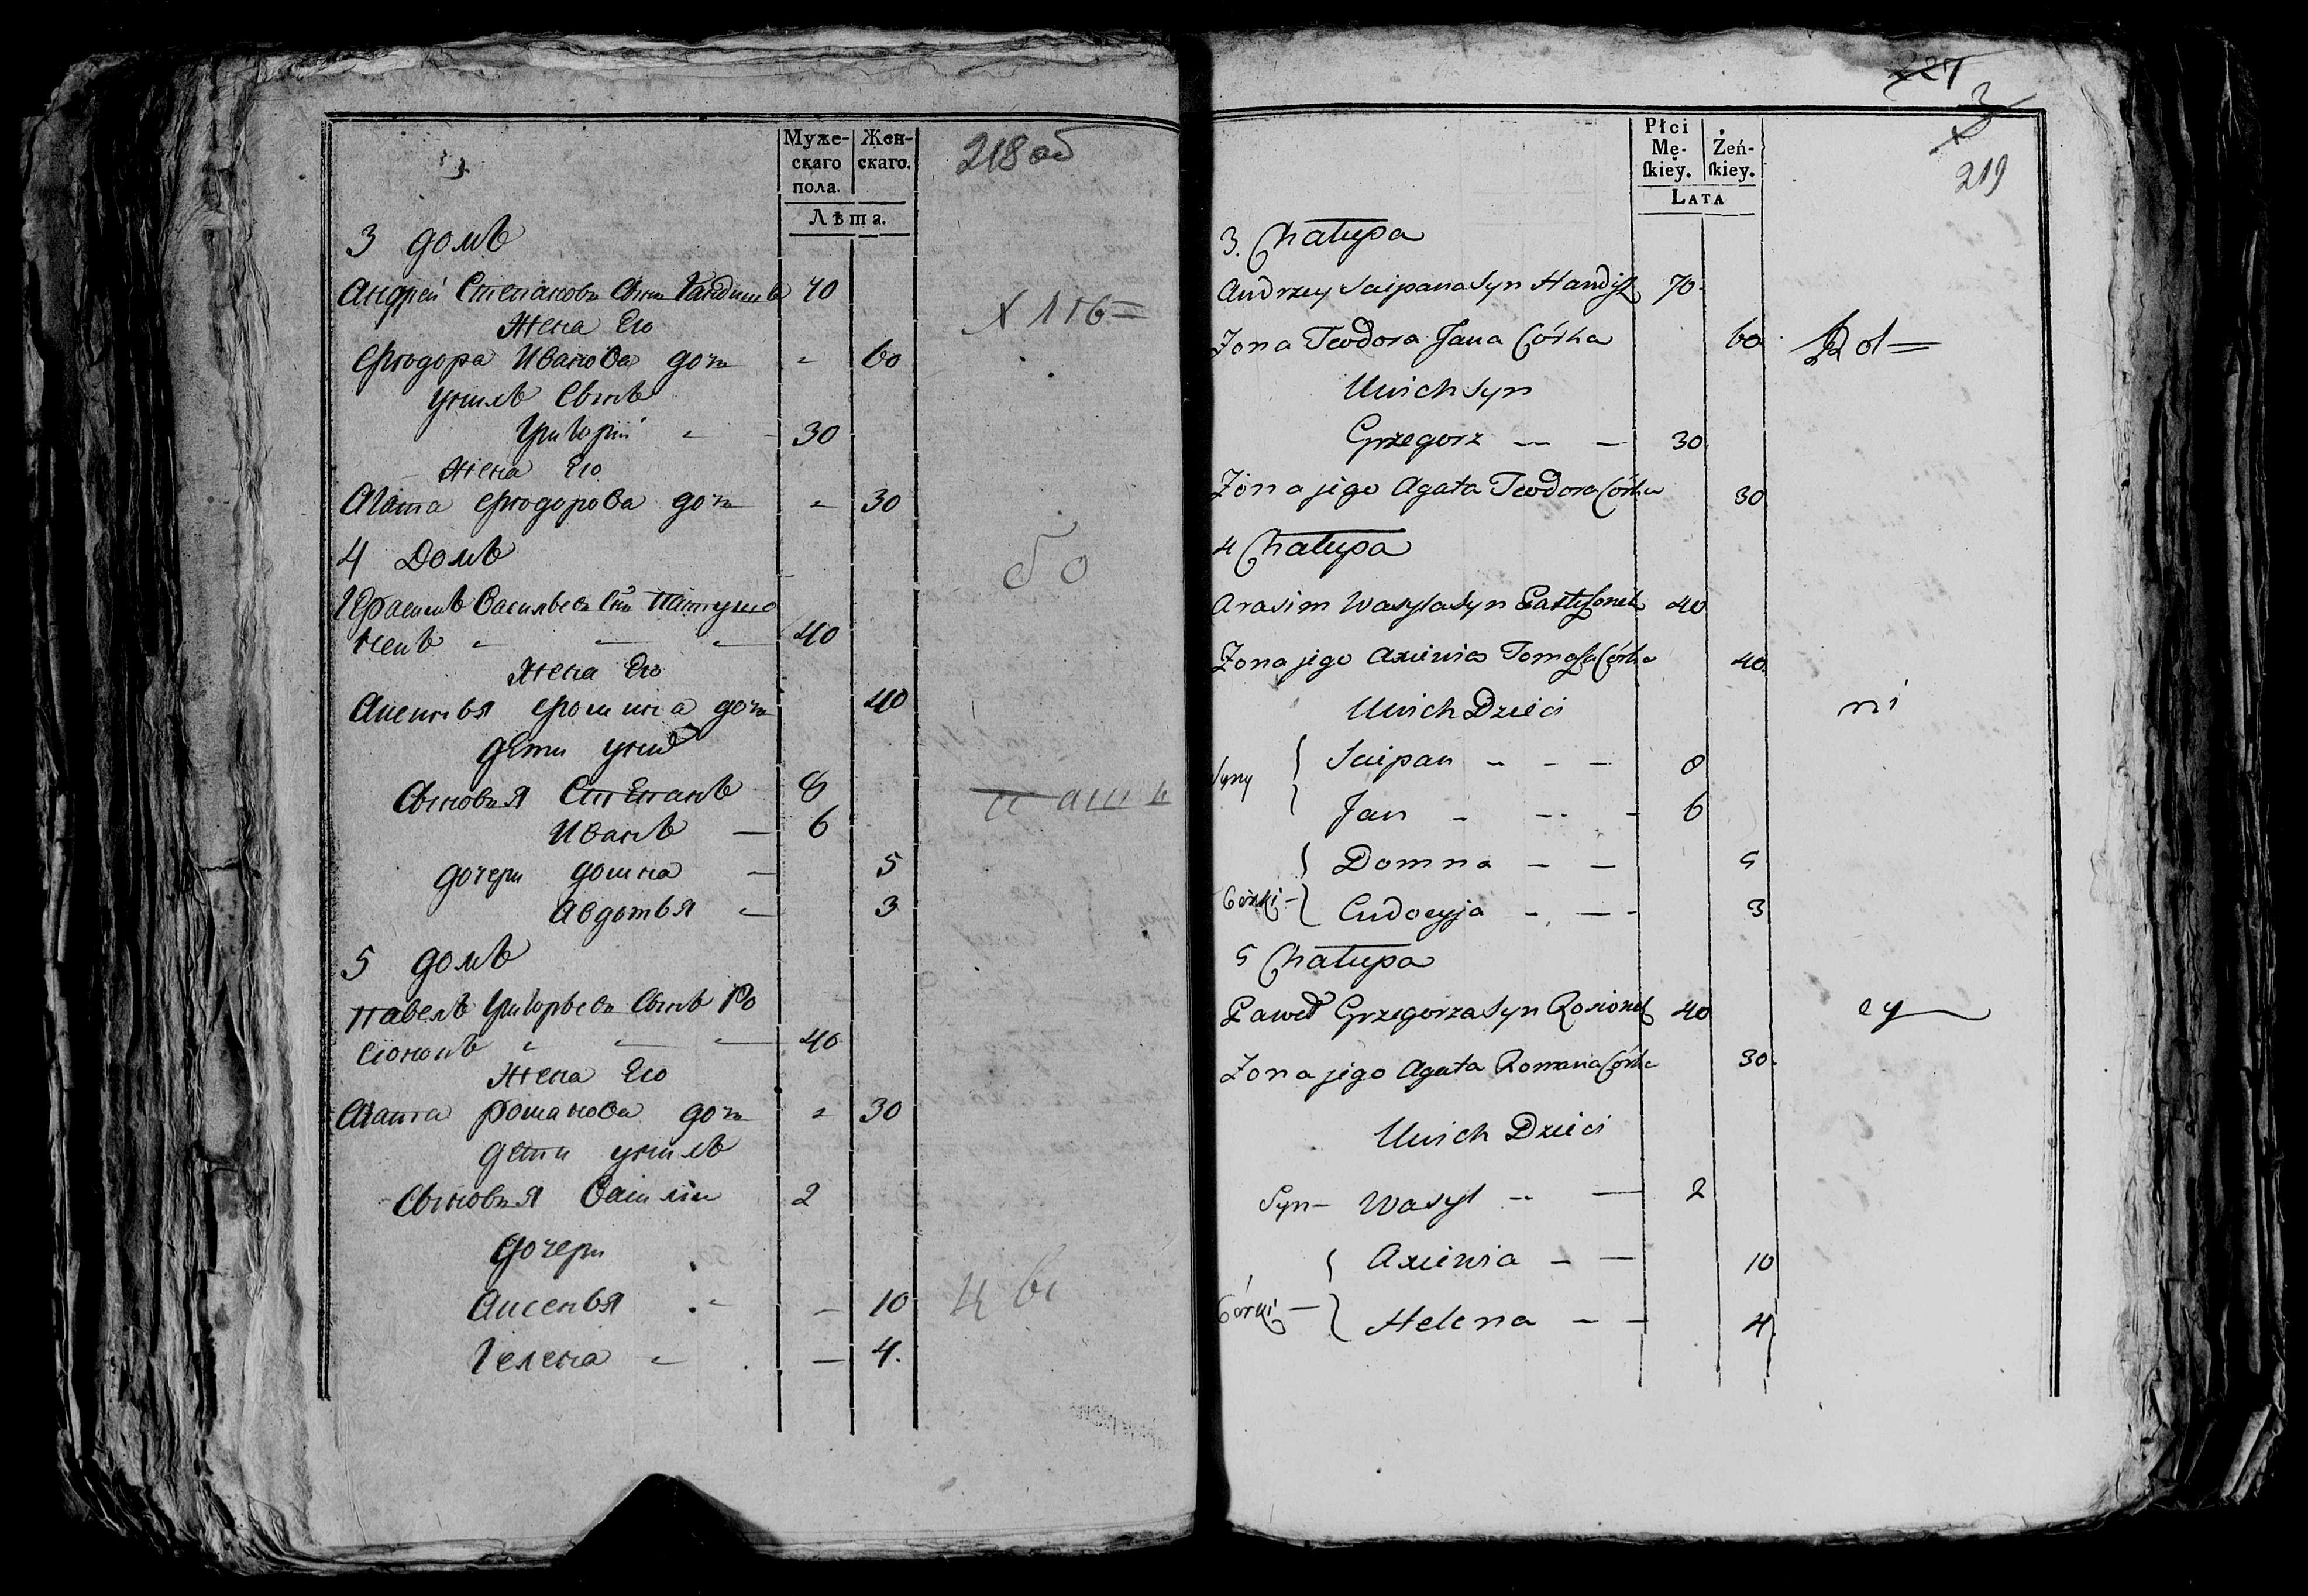 Муже-
скаго
пола.
Жен-
скаго.
Лѣта.
218 об
3 домъ
Андрей Степановъ Сынъ Гандишъ 70
Жена Его
Фіодора Иванова дочь - 60
У нихъ Сынъ
Григорій - 30
Жена Его
Агата Фіодорова дочь - 30
4 Домъ
Герасимъ Васильевъ Сынъ
40
Жена Его
Аксинья Фомина дочь 40
Дети у нихъ
Сыновья Степанъ 8
Иванъ — 6
дочери Домна — 5
Авдотья - 3
5 домъ
Павелъ Григорьевъ Сынъ Ро
сіонокъ - — — 40
Жена Его
Агата Романова дочь - 30
Дети у нихъ
Сыновья Василій 2
Дочери
Аксенья - — 10
Гелена - — 4.
227
3
219
Płci
Mę-
ſkiey.
Żeń-
ſkiey.
LATA
3. Chałupa
Andrzey Scipana Syn Handysz 70.
Żona Teodora Jana Córka 60.
U nich syn
Grzegorz — — 30.
Żona jego Agata Teodora Córka 30
4 Chałupa
Arasim Wasyla Syn 40
Żona jego Axienia Tomasza Córka 40.
U nich Dzieci
Syny
Scipan - - - 8
Jan - - - 6
Córki -
Domna - - 5
Eudocyja - - - 3
5 Chałupa
Paweł Grzegorza Syn Rosionek 40
Żona jego Agata Romana Córka 30.
U nich Dzieci
Syn - Wasyl - — 2
Córki —
Axienia - — 10
Helena - - 4.